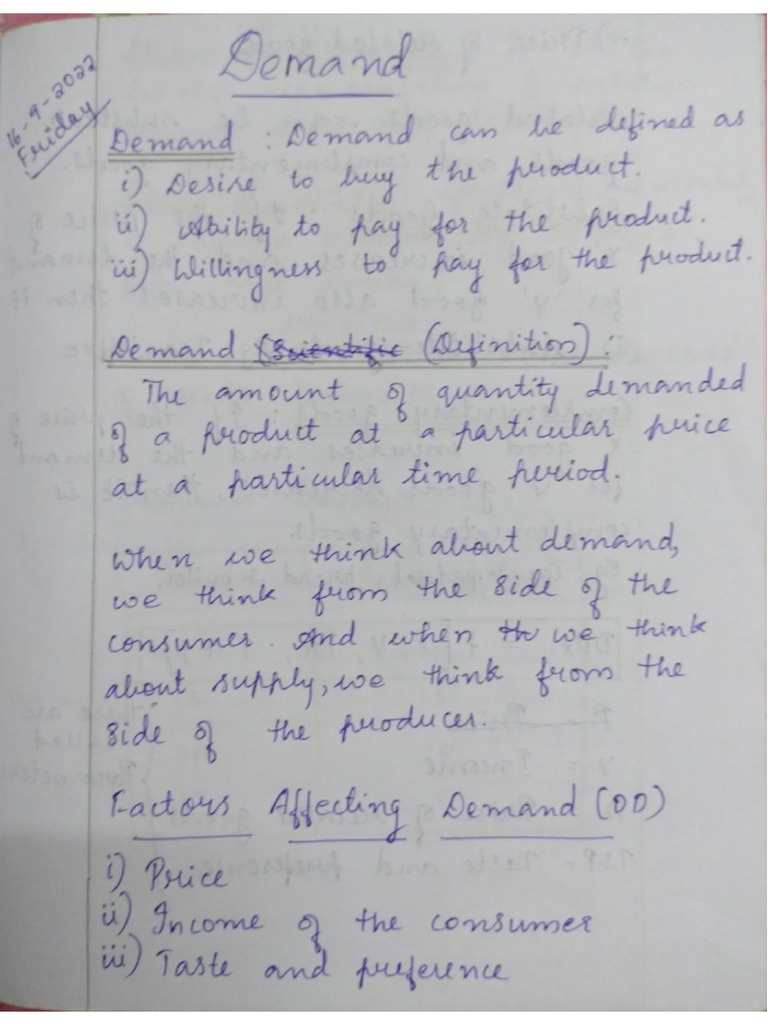 Demand
16-9-2022
Friday
Demand : Demand can be defined as
i) Desire to buy the product.
ii) Ability to pay for the product.
iii) Willingness to pay for the product.
Demand (Scientific (Definition) :
The amount of quantity demanded
of a product at a particular price
at a particular time period.
When we think about demand,
we think from the side of the
consumer. And when th we think
about supply, we think from the
side of the producer.
Factors Affecting Demand (DD)
i) Price
ii) Income of the consumer
iii) Taste and preference